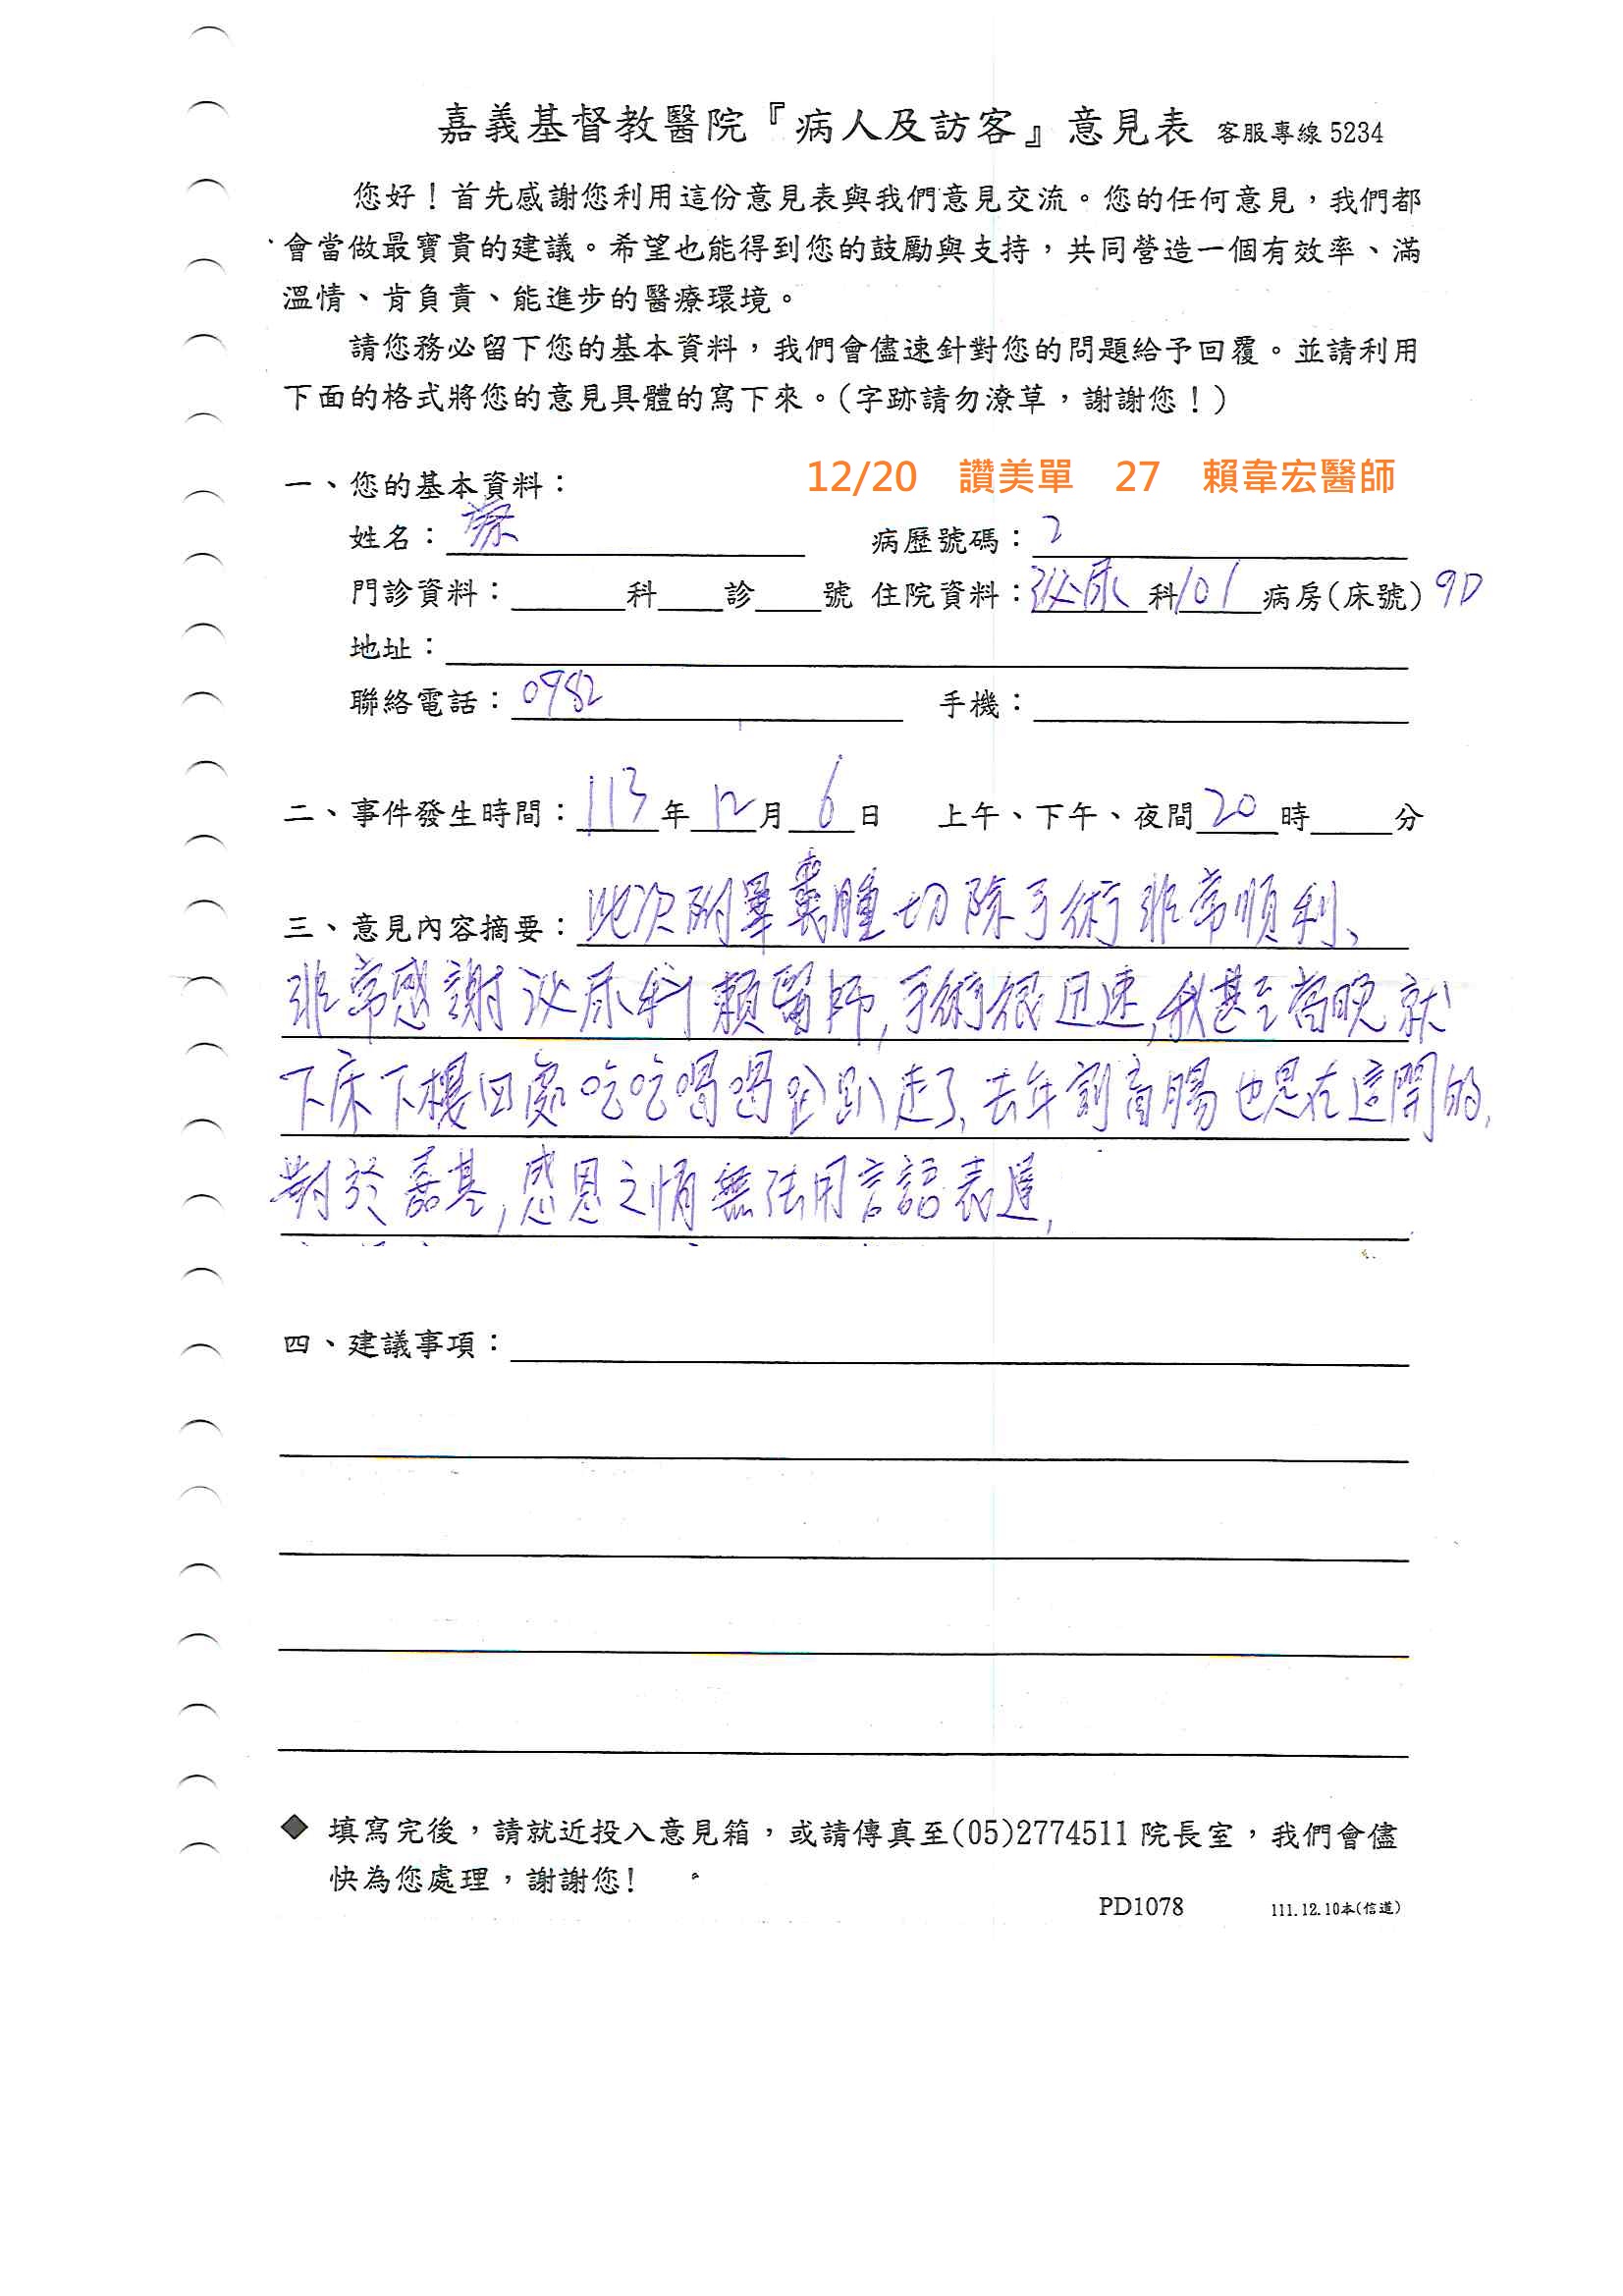 嘉義基督教醫院『病人及訪客』意見表 客服專線 5234
您好！首先感謝您利用這份意見表與我們意見交流。您的任何意見，我們都
會當做最寶貴的建議。希望也能得到您的鼓勵與支持，共同營造一個有效率、滿
溫情、肯負責、能進步的醫療環境。
請您務必留下您的基本資料，我們會儘速針對您的問題給予回覆。並請利用
下面的格式將您的意見具體的寫下來。(字跡請勿潦草，謝謝您！)
12/20 讚美單 27 賴韋宏醫師
一、您的基本資料：
姓名： 病歷號碼：2
門診資料： 科 診 號 住院資料：泌尿科101病房(床號) 9D
地址：
聯絡電話：0982 手機：
二、事件發生時間：113年12月6日 上午、下午、夜間20時 分
三、意見內容摘要：此次附睪囊腫切除手術非常順利、
非常感謝泌尿科賴醫師,手術很迅速,我甚至當晚就
下床下樓四處吃吃喝喝趴趴走了,去年割盲腸也是在這開的,
對於嘉基,感恩之情無法用言語表達,
四、建議事項：
◆ 填寫完後，請就近投入意見箱，或請傳真至(05)2774511 院長室，我們會儘
快為您處理，謝謝您!
PD1078 111.12.10本(信道)